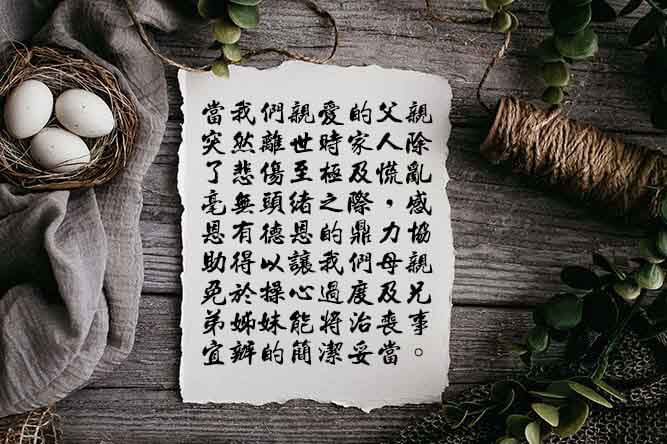 當我們親愛的父親
突然離世時家人除
了悲傷至極及慌亂
毫無頭緒之際，感
恩有德恩的鼎力協
助得以讓我們母親
免於操心過度及兄
弟姊妹能將治喪事
宜辦的簡潔妥當。